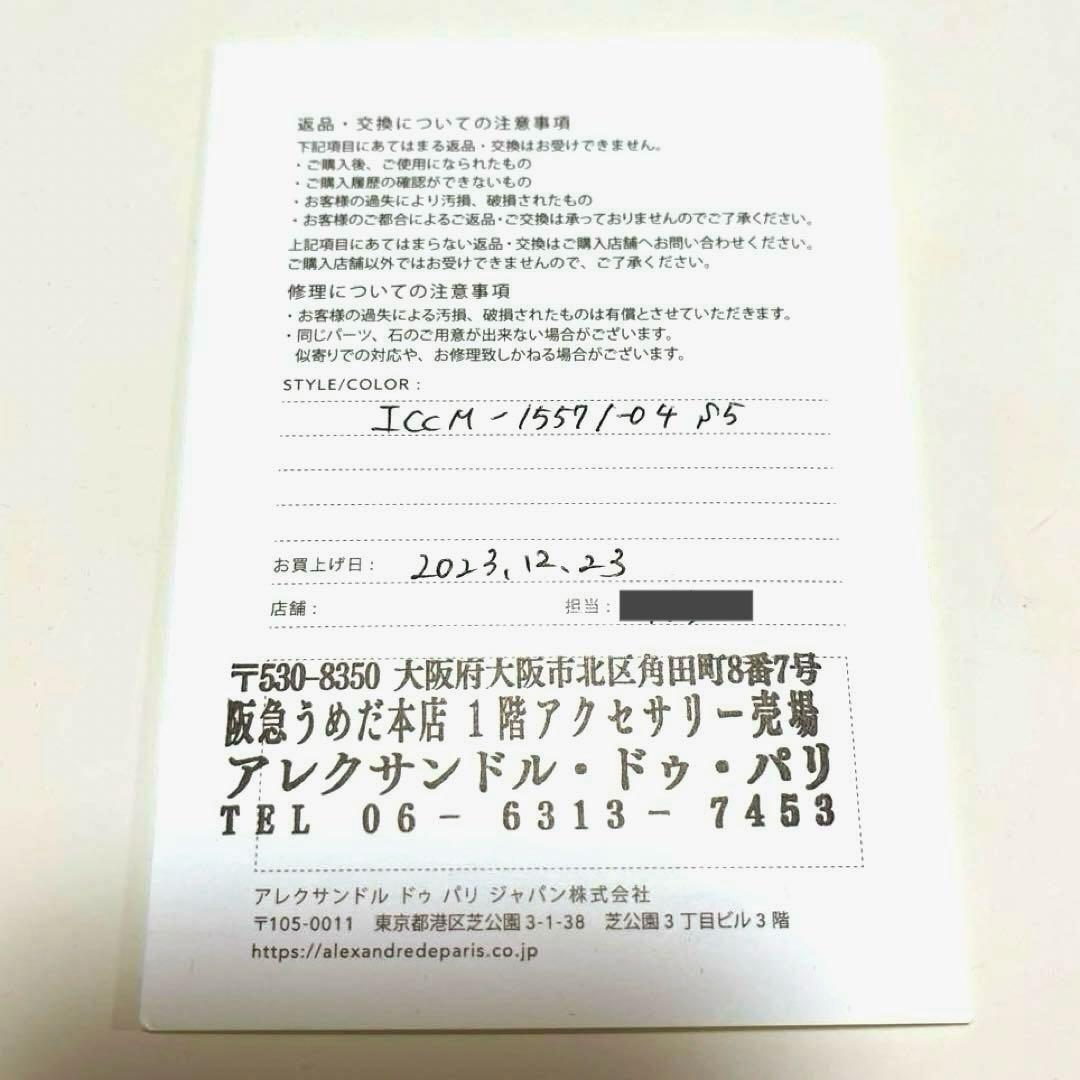 返品・交換についての注意事項
下記項目にあてはまる返品・交換はお受けできません。
・ご購入後、ご使用になられたもの
・ご購入履歴の確認ができないもの
・お客様の過失により汚損、破損されたもの
・お客様のご都合によるご返品・ご交換は承っておりませんのでご了承ください。
上記項目にあてはまらない返品・交換はご購入店舗へお問い合わせください。
ご購入店舗以外ではお受けできませんので、ご了承ください。
修理についての注意事項
・お客様の過失による汚損、破損されたものは有償とさせていただきます。
・同じパーツ、石のご用意が出来ない場合がございます。
似寄りでの対応や、お修理致しかねる場合がございます。
STYLE/COLOR :
ICCM-15571-04 S5
お買上げ日 : 2023.12.23
店舗 : 担当 :
〒530-8350 大阪府大阪市北区角田町8番7号
阪急うめだ本店 1階アクセサリー売場
アレクサンドル・ドゥ・パリ
TEL 06-6313-7453
アレクサンドル ドゥ パリ ジャパン株式会社
〒105-0011 東京都港区芝公園3-1-38 芝公園3丁目ビル3階
https://alexandredeparis.co.jp